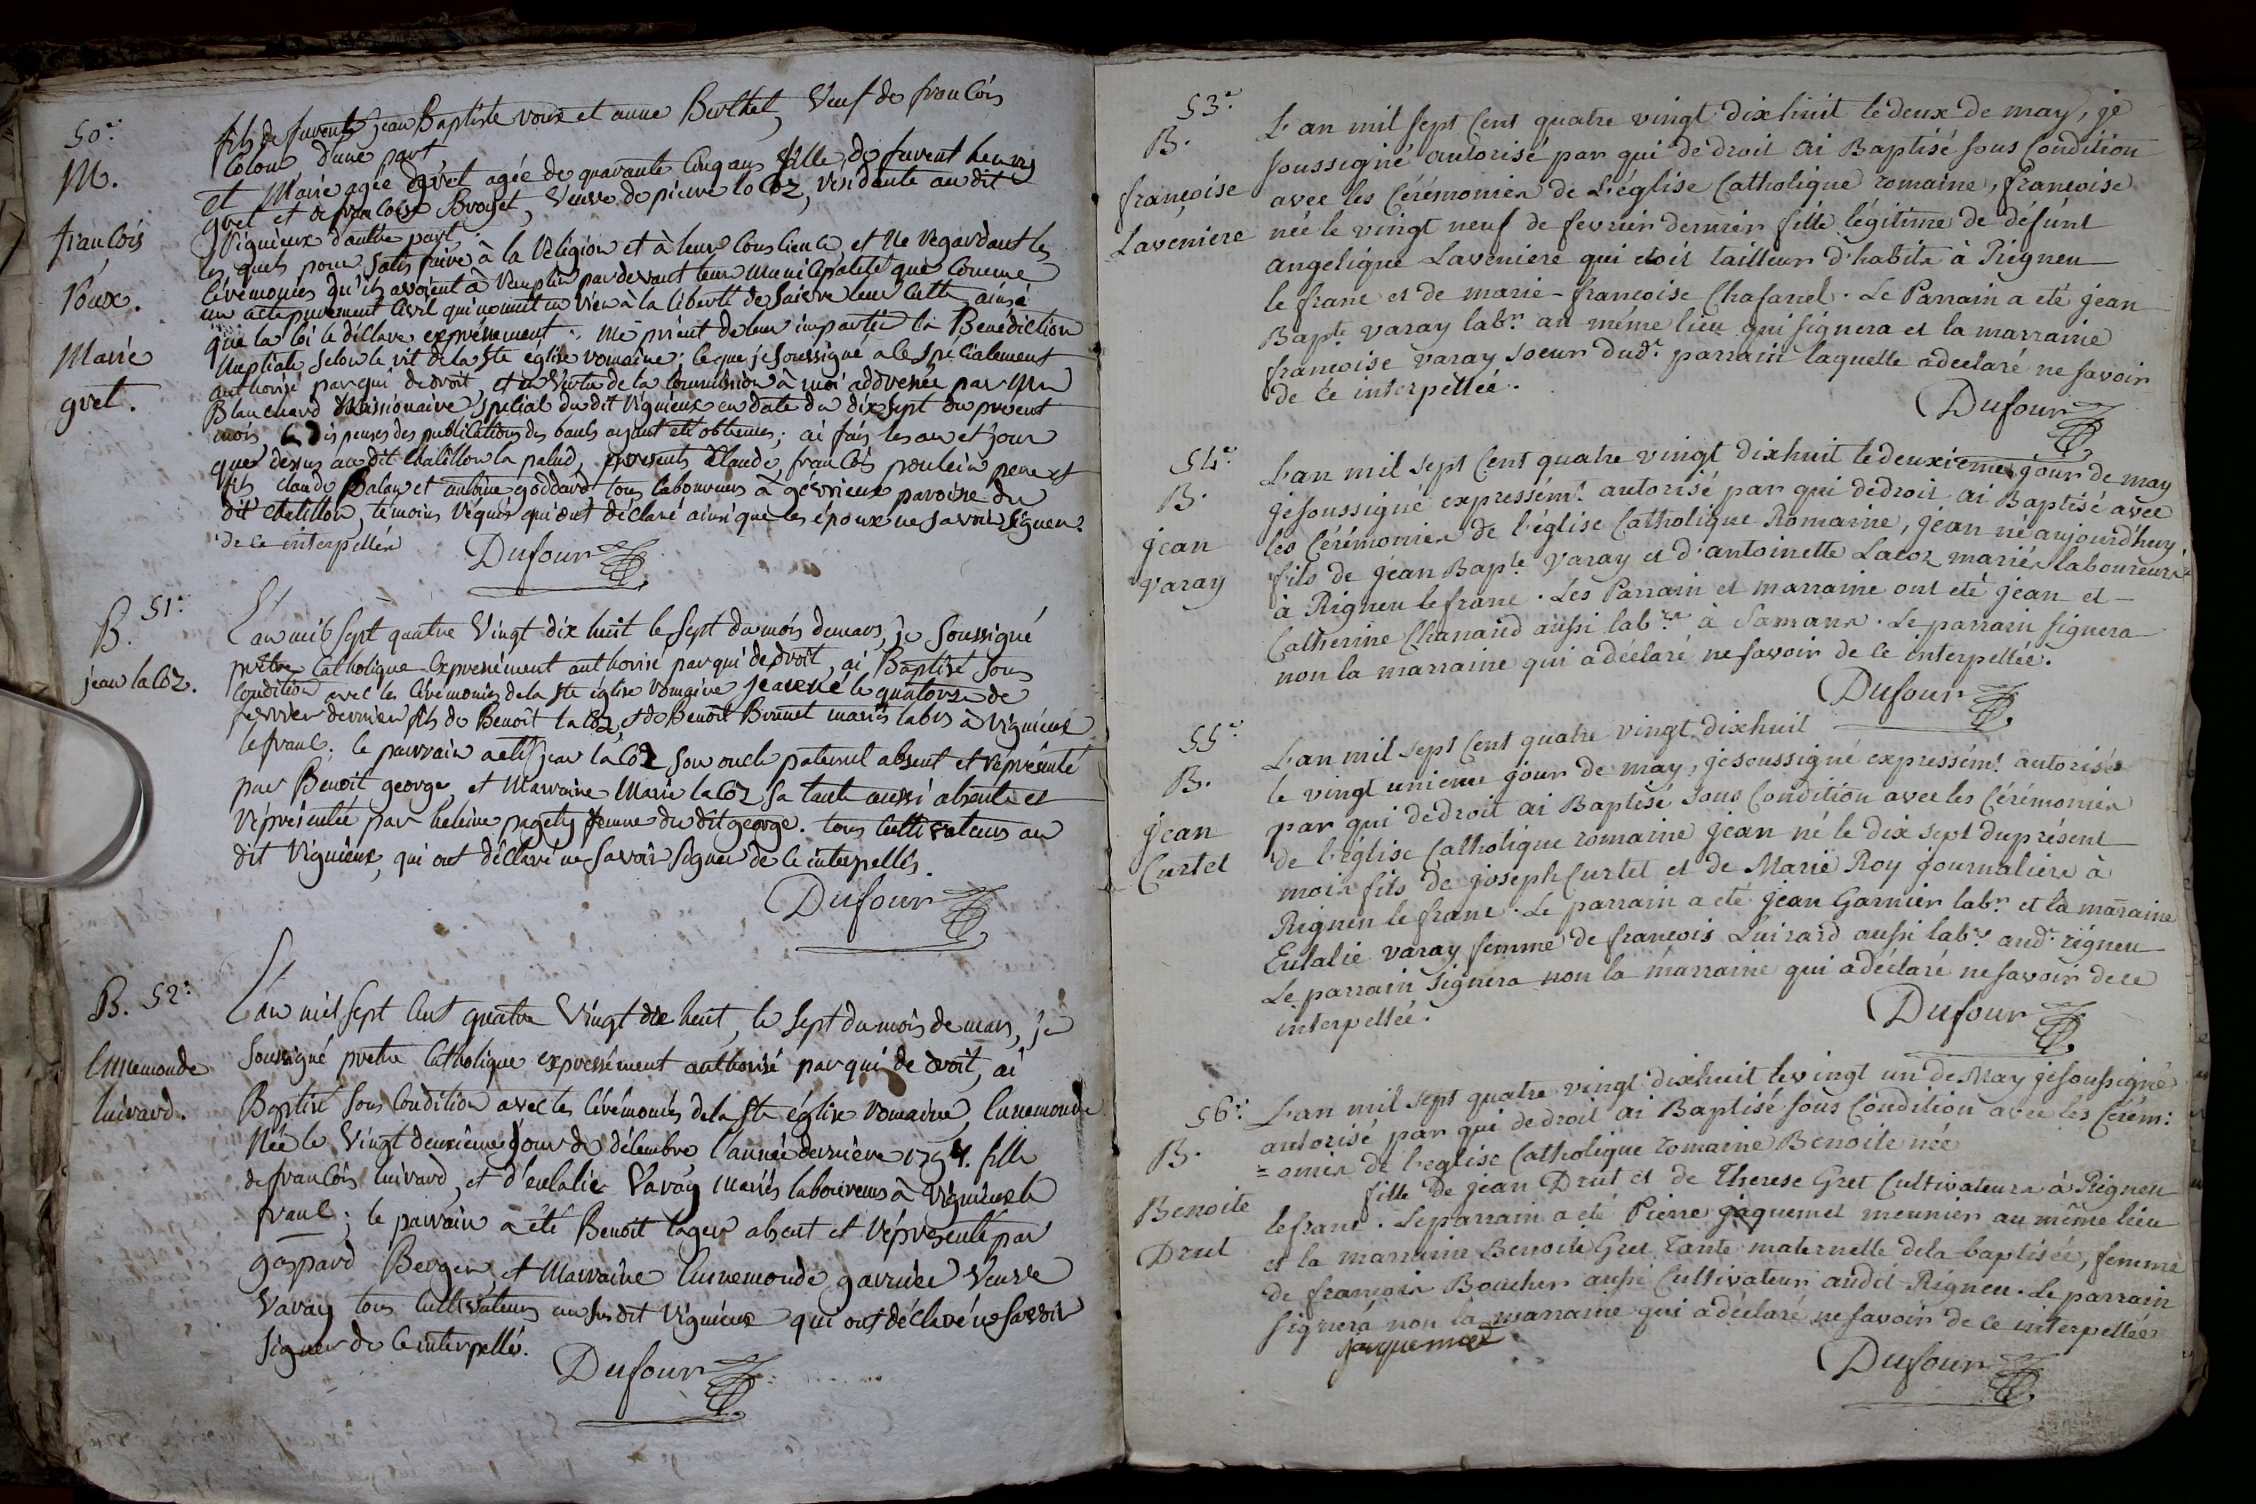 50e.
M.
françois
Roux.
Marie
gret.
fils de furent jean Baptiste roux et anne Berthet, Veuf de françois
Colomb d'une part
et Marie agée gret agée de quarante Cinq ans fille de furent henry
gret et de françoise Broyet, Veuve de pierre la Coz, résidante au dit
Rigneux d'autre part
les quels pour satisfaire à la Réligion et à leur Conscience, et Ne regardant les
Cérémonies qu'ils avoient à Remplir par devant leur municipalité que comme
un acte purement Civil qui ne nuit en rien à la liberté de suivre leur Culte, ainsi
que la loi le déclare expressément. me prient de leur impartir la Bénédiction
Nuptiale selon le rit de la ste église romaine; ce que je soussigné à ce spécialement
authorisé par qui de droit, et en Vertu de la Commission à moi addressée par Mr
Blanchard Missionaire spécial du dit rigneux en date du dix sept du present
mois, les dispenses des publications des bancs ayant eté obtenues; ai fais les an et jour
que dessus au dit Chatillon la palud, presents Claude, françois poulain pere et
fils claude Balan et antoine goddard tous laboureurs à gevrieux paroisse du
dit chatillon, témoins réquis qui ont déclaré ainsi que les époux ne savoir signer
de ce interpellés
Dufour
B. 51e.
jean la Coz.
L'an mil sept quatre Vingt dix huit le sept du mois de mars, je soussigné
prêtre Catholique Expressément authorisé par qui de droit, ai Baptisé sous
Condition avec les Cérémonies de la ste église romaine jean né le quatorze de
fevrier dernier fils de Benoît la Coz, et de Benoîte Brunet mariés labrs à rigneux
le franc; le parrain a eté jean la Coz son oncle paternel absent et représenté
par Benoit george, et Marraine Marie la Coz sa tante aussi absente et
réprésentée par heleine pagety femme du dit george. tous Cultivateurs au
dit Rigneux, qui ont déclaré ne savoir signer de ce interpellés.
Dufour
B. 52e.
Ennemonde
luirard.
L'an mil sept Cent quatre Vingt dix huit, le sept du mois de mars, je
soussigné pretre Catholique expressément authorisé par qui de droit, ai
Baptisé sous Condition avec les Cérémonies de la ste église romaine, Ennemonde
Née le Vingt deuxième jour de décembre l'année dernière 1797. fille
de françois luirard, et d'eulalie Varay mariés laboureurs à Rigneux le
franc; le parrain a été Benoit lager absent et réprésenté par
gaspard Berger, et Marraine Ennemonde garnier Veuve
Varay tous Cultivateurs au susdit Rigneux qui ont déclaré ne savoir
signer de ce interpellés.
Dufour
53e.
B.
françoise
Laveniere
L'an mil sept Cent quatre vingt dixhuit le deux de may, je
soussigné autorisé par qui de droit ai Baptisé sous Condition
avec les Cérémonies de L'église Catholique romaine, françoise
née le vingt neuf de fevrier dernier fille légitime de défunt
angelique Laveniere qui etoit tailleur d'habits à Rigneu
le franc et de marie-françoise Chafanel. Le Parrain a eté jean
Bapte. varay labr. au même lieu qui signera et la marraine
françoise varay soeur dud. parrain laquelle a declaré ne savoir
de ce interpellée.
Dufour
54e.
B.
jean
varay
L'an mil sept Cent quatre vingt dixhuit le deuxieme jour de may
je soussigné expressémt. autorisé par qui de droit ai Baptisé avec
les Cérémonies de l'église Catholique Romaine, jean né aujourd'huy
fils de jean Bapte. varay et d'antoinette Lacoz mariés laboureurs
à Rigneu le franc. Les Parrain et marraine ont été jean et
Catherine Chanaud aussi labrs. à Samans. Le parrain signera
non la marraine qui a déclaré ne savoir de ce interpellée.
Dufour
55e.
B.
jean
Curtet
L'an mil sept Cent quatre vingt dixhuit
le vingt unieme jour de may, je soussigné expressémt. autorisé
par qui de droit ai Baptisé sous Condition avec les Cérémonies
de l'église Catholique romaine jean né le dix sept du présent
mois fils de joseph Curtet et de Marie Roy journaliers à
Rigneu le franc. Le parrain a eté jean Garnier labr. et la maraine
Eulalie varay femme de françois Luirard aussi labr. aud. rigneu
Le parrain signera non la marraine qui a déclaré ne savoir de ce
interpellée.
Dufour
56e.
B.
Benoite
Drut
L'an mil sept quatre vingt dixhuit le vingt un de May je soussigné
autorisé par qui de droit ai Baptisé sous Condition avec les Cérém:
=onies de l'eglise Catholique romaine Benoite née
fille de jean Drut et de Therese Gret Cultivateurs à Rigneu
le franc. Le parrain a eté Pierre jaquemet meunier au même lieu
et la marraine Benoite Gret Tante maternelle de la baptisée, femme
de françois Boucher aussi Cultivateur audit Rigneu. Le parrain
signera non la marraine qui a déclaré ne savoir de ce interpellée
jaquemet
Dufour